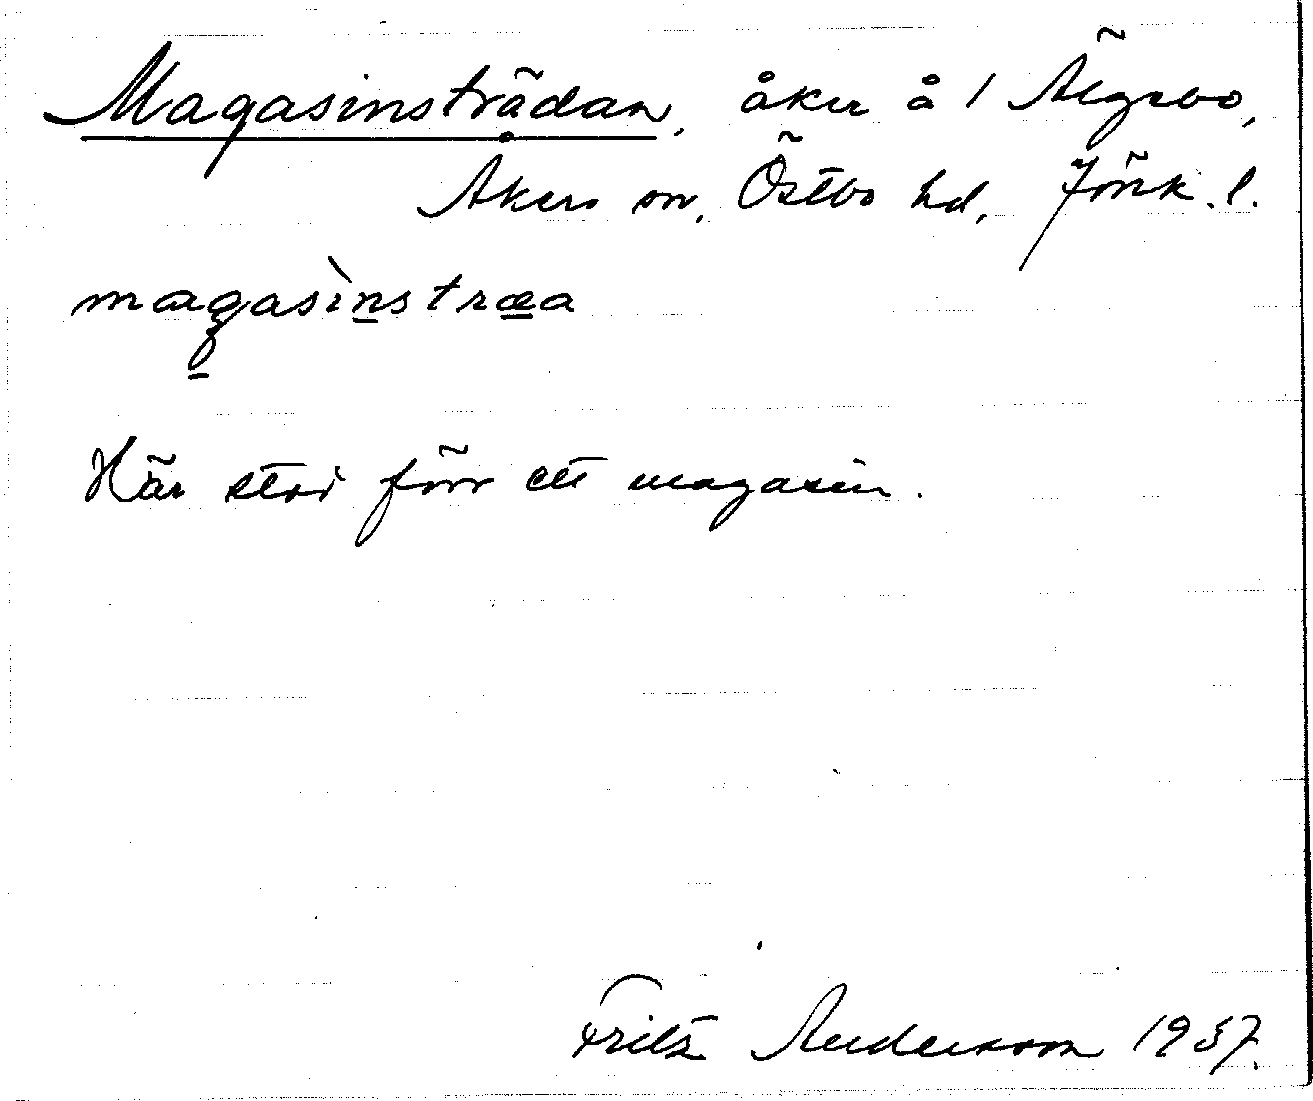 Magasinsträdan, åker å 1 Älgabo,
Åkers sn, Östbo hd, Jönk. l.
magasìnstræa
Här stod förr ett magasin.
Fritz Andersson 1937.